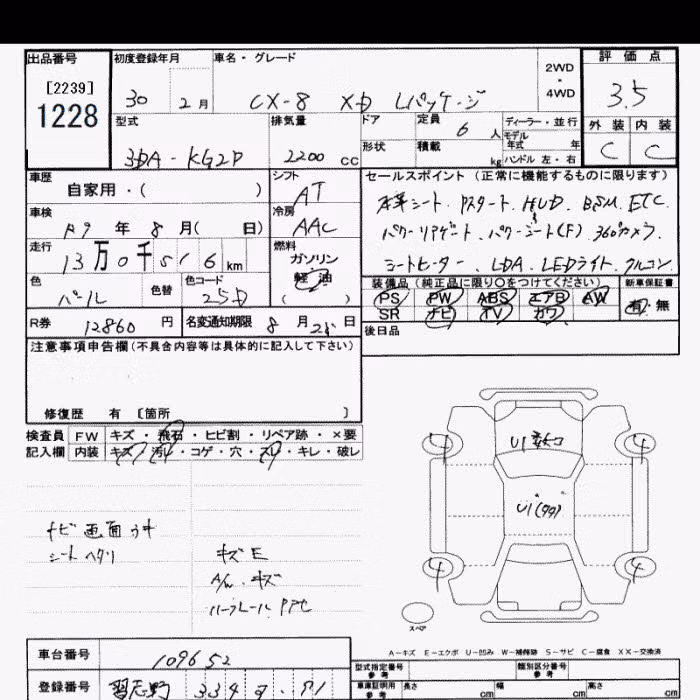 出品番号
[2239]
1228
初度登録年月
30 2月
車名・グレード
CX-8 XD Lパッケージ
2WD
・
4WD
評価点
3.5
外装 内装
C C
型式
3DA-KG2P
排気量
2200 cc
ドア
形状
定員
6 人
積載
kg
ディーラー・並行
モデル年式 年
ハンドル 左・右
車歴
自家用・( )
シフト
AT
車検
R9 年 8 月( 日)
冷房
AAC
走行
13万0千516 km
燃料
ガソリン
軽油
( )
色
パール
色替
色コード
25D
R券 12860 円
名変通知期限 8月 28日
セールスポイント (正常に機能するものに限ります)
本革シート、Pスタート、HUD、BSM、ETC
パワーリアゲート、パワーシート(F) 360°カメラ
シートヒーター、LDA、LEDライト、クルコン
装備品 (純正品に限り○をつけてください)
新車保証書
PS PW ABS エアB AW
SR ナビ TV カワ
有・無
後日品
注意事項申告欄 (不具合内容等は具体的に記入して下さい)
修復歴 有 〔箇所 〕
検査員
記入欄
FW キズ・飛石・ヒビ割・リペア跡・×要
内装 キズ・汚れ・コゲ・穴・スレ・キレ・破レ
ナビ画面ウキ
シートヘタリ
キズE
A/W、キズ
ルーフレール
U1
U1
4 4
4 4
スペア
A-キズ E-エクボ U-凹み W-補修跡 S-サビ C-腐食 XX-交換済
車台番号
109652
登録番号
習志野 334
型式指定番号
参考
類別区分番号
参考
車庫証明用
参考
長さ cm
幅 cm
高さ cm